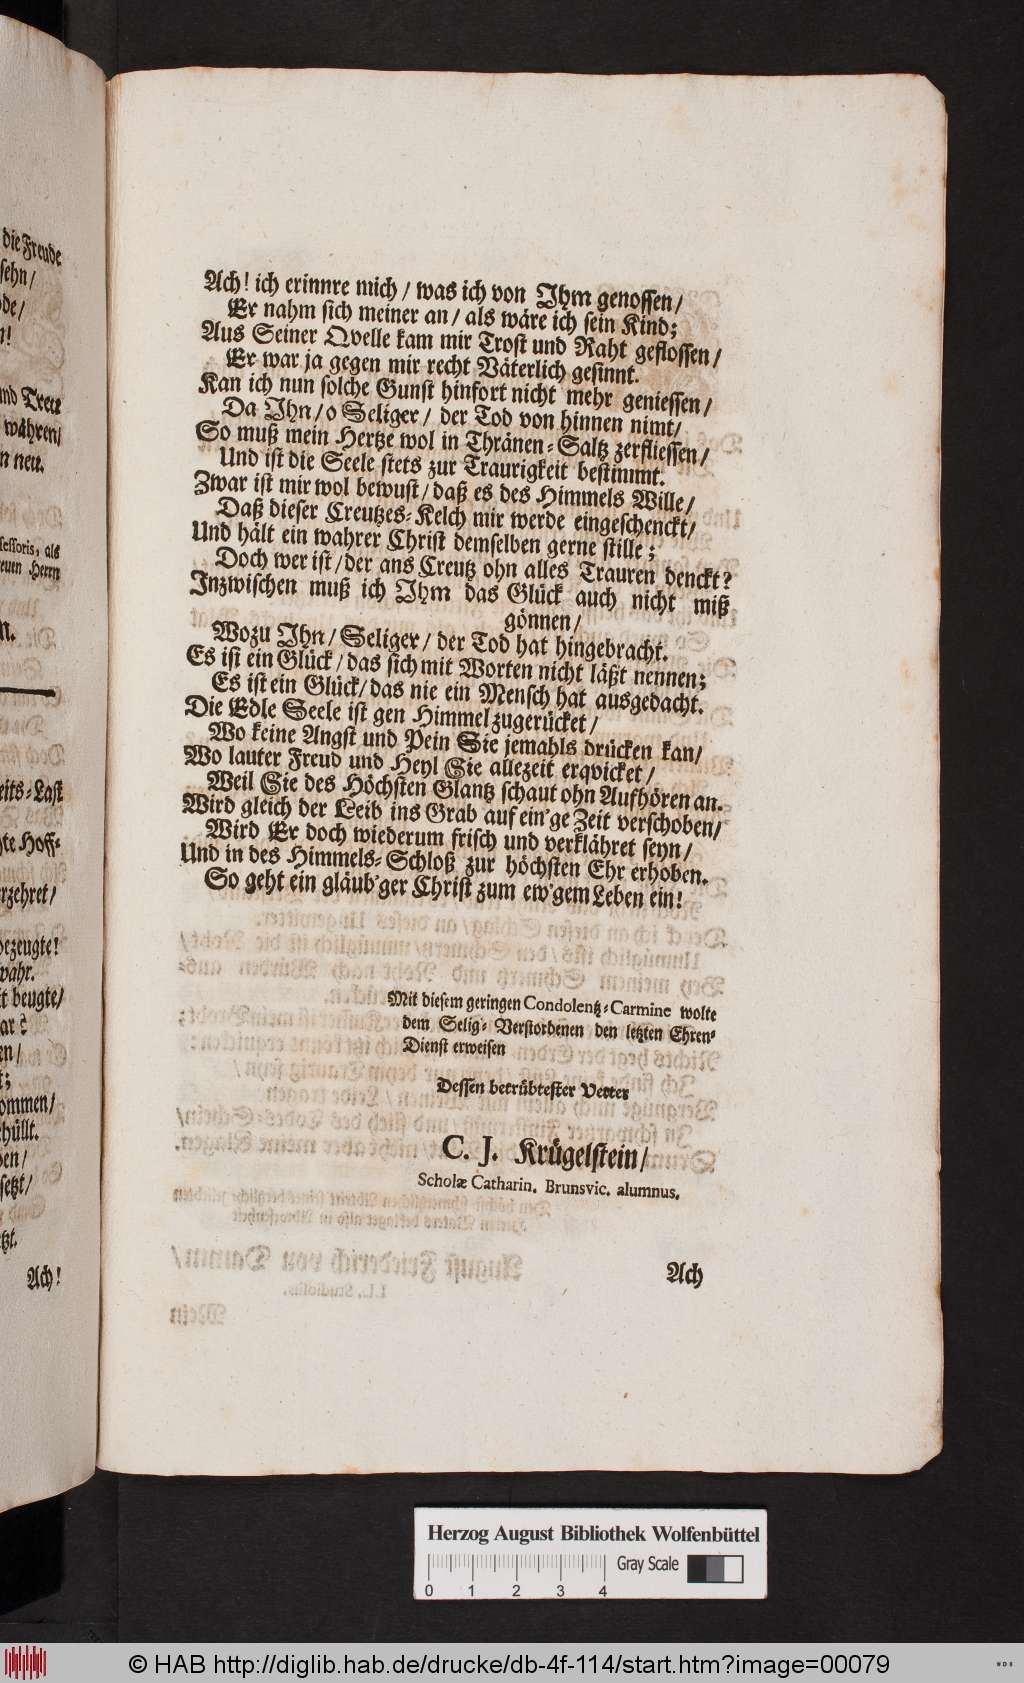 die Freude
sehn/
und Treu
währen/
n neu.
sessoris, als
euen Herrn
eits-Last
te Hoff-
rzehret/
bezeugte!
wahr.
t beugte/
ommen/
hüllt.
setzt/
tzt.
Ach!
Ach! ich erinnre mich / was ich von Ihm genossen/
Er nahm sich meiner an/ als wäre ich sein Kind;
Aus Seiner Qvelle kam mir Trost und Raht geflossen/
Er war ja gegen mir recht Väterlich gesinnt.
Kan ich nun solche Gunst hinfort nicht mehr geniessen/
Da Ihn/ o Seliger/ der Tod von hinnen nimt/
So muß mein Hertze wol in Thränen-Saltz zerfliessen/
Und ist die Seele stets zur Traurigkeit bestimmt.
Zwar ist mir wol bewust/ daß es des Himmels Wille/
Daß dieser Creutzes-Kelch mir werde eingeschenckt/
Und hält ein wahrer Christ demselben gerne stille;
Doch wer ist/ der ans Creutz ohn alles Trauren denckt?
Inzwischen muß ich Ihm das Glück auch nicht miß
gönnen/
Wozu Ihn/ Seliger/ der Tod hat hingebracht.
Es ist ein Glück/ das sich mit Worten nicht läßt nennen;
Es ist ein Glück/ das nie ein Mensch hat ausgedacht.
Die Edle Seele ist gen Himmel zugerücket/
Wo keine Angst und Pein Sie jemahls drücken kan/
Wo lauter Freud und Heyl Sie allezeit erqvicket/
Weil Sie des Höchsten Glantz schaut ohn Aufhören an.
Wird gleich der Leib ins Grab auf ein'ge Zeit verschoben/
Wird Er doch wiederum frisch und verklähret seyn/
Und in des Himmels-Schloß zur höchsten Ehr erhoben.
So geht ein gläub'ger Christ zum ew'gem Leben ein!
Mit diesem geringen Condolentz-Carmine wolte
dem Selig-Verstorbenen den letzten Ehren-
Dienst erweisen
Dessen betrübtester Vetter
C. J. Krügelstein/
Scholæ Catharin. Brunsvic. alumnus.
Ach
Herzog August Bibliothek Wolfenbüttel
Gray Scale
0 1 2 3 4
© HAB http://diglib.hab.de/drucke/db-4f-114/start.htm?image=00079